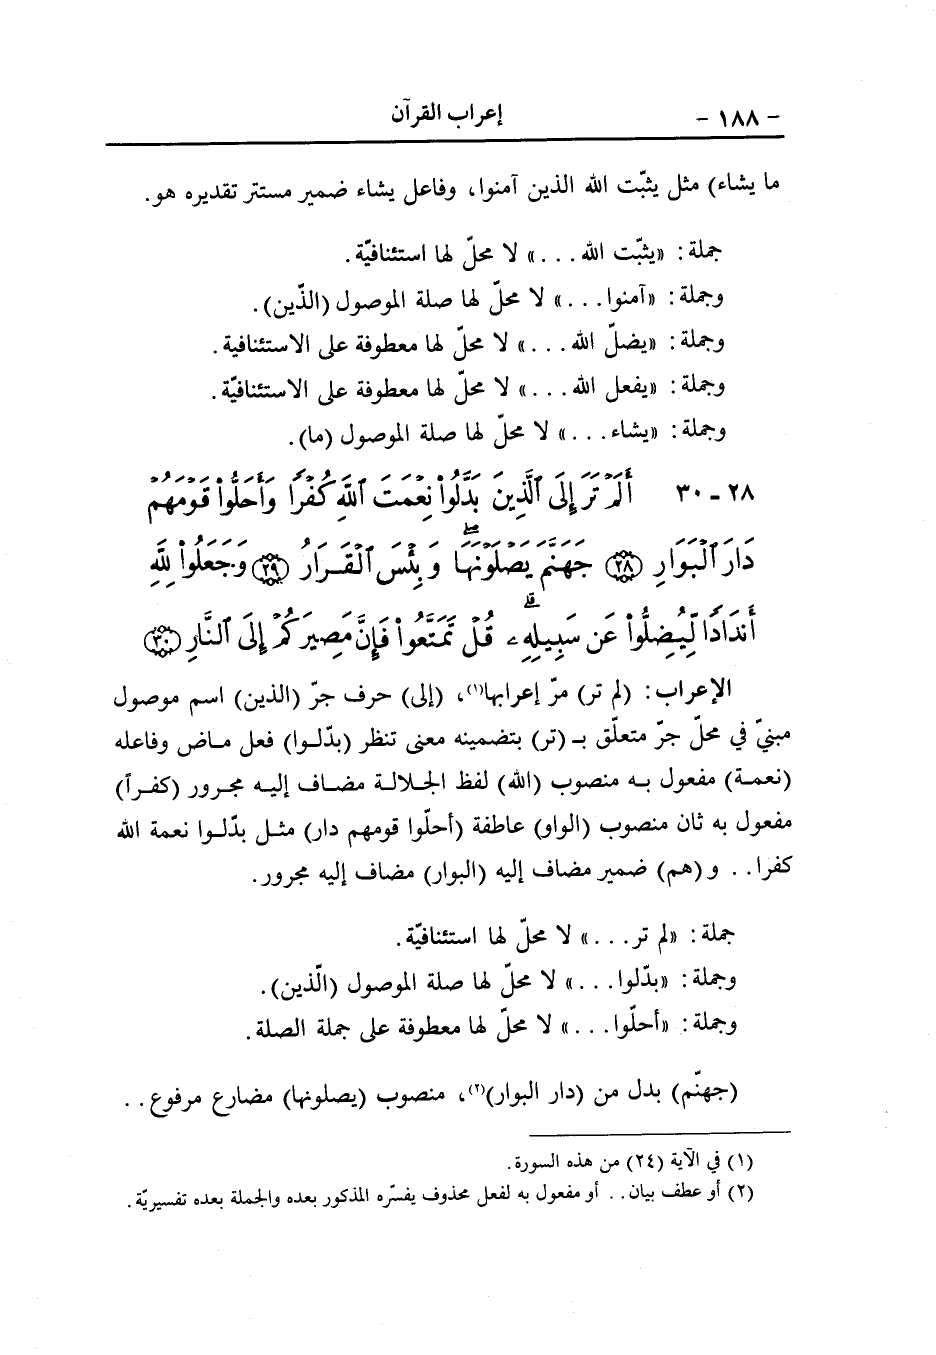 - ١٨٨ -
إعراب القرآن
ما يشاء) مثل يثبّت الله الذين آمنوا، وفاعل يشاء ضمير مستتر تقديره هو.
جملة: «يثبّت الله . . .» لا محلّ لها استئنافيّة.
وجملة: «آمنوا. . .» لا محلّ لها صلة الموصول (الذّين).
وجملة: «يضلّ الله . . .» لا محلّ لها معطوفة على الاستئنافية.
وجملة: «يفعل الله . . .» لا محلّ لها معطوفة على الاستئنافيّة.
وجملة: «يشاء. . .» لا محلّ لها صلة الموصول (ما).
٢٨ - ٣٠ أَلَمْ تَرَ إِلَى ٱلَّذِينَ بَدَّلُوا۟ نِعْمَتَ ٱللَّهِ كُفْرًا وَأَحَلُّوا۟ قَوْمَهُمْ
دَارَ ٱلْبَوَارِ ۝٢٨ جَهَنَّمَ يَصْلَوْنَهَا ۖ وَبِئْسَ ٱلْقَرَارُ ۝٢٩ وَجَعَلُوا۟ لِلَّهِ
أَندَادًا لِّيُضِلُّوا۟ عَن سَبِيلِهِۦ ۗ قُلْ تَمَتَّعُوا۟ فَإِنَّ مَصِيرَكُمْ إِلَى ٱلنَّارِ ۝٣٠
الإعراب: (لم تر) مرّ إعرابها(١)، (إلى) حرف جرّ (الذين) اسم موصول
مبنيّ في محلّ جرّ متعلّق بـ (تر) بتضمينه معنى تنظر (بدّلوا) فعل ماض وفاعله
(نعمة) مفعول به منصوب (الله) لفظ الجلالة مضاف إليه مجرور (كفراً)
مفعول به ثان منصوب (الواو) عاطفة (أحلّوا قومهم دار) مثل بدّلوا نعمة الله
كفرا. . و (هم) ضمير مضاف إليه (البوار) مضاف إليه مجرور.
جملة: «لم تر. . .» لا محلّ لها استئنافيّة.
وجملة: «بدّلوا. . .» لا محلّ لها صلة الموصول (الّذين).
وجملة: «أحلّوا. . .» لا محلّ لها معطوفة على جملة الصلة.
(جهنّم) بدل من (دار البوار)(٢)، منصوب (يصلونها) مضارع مرفوع. .
(١) في الآية (٢٤) من هذه السورة.
(٢) أو عطف بيان. . أو مفعول به لفعل محذوف يفسّره المذكور بعده والجملة بعده تفسيريّة.